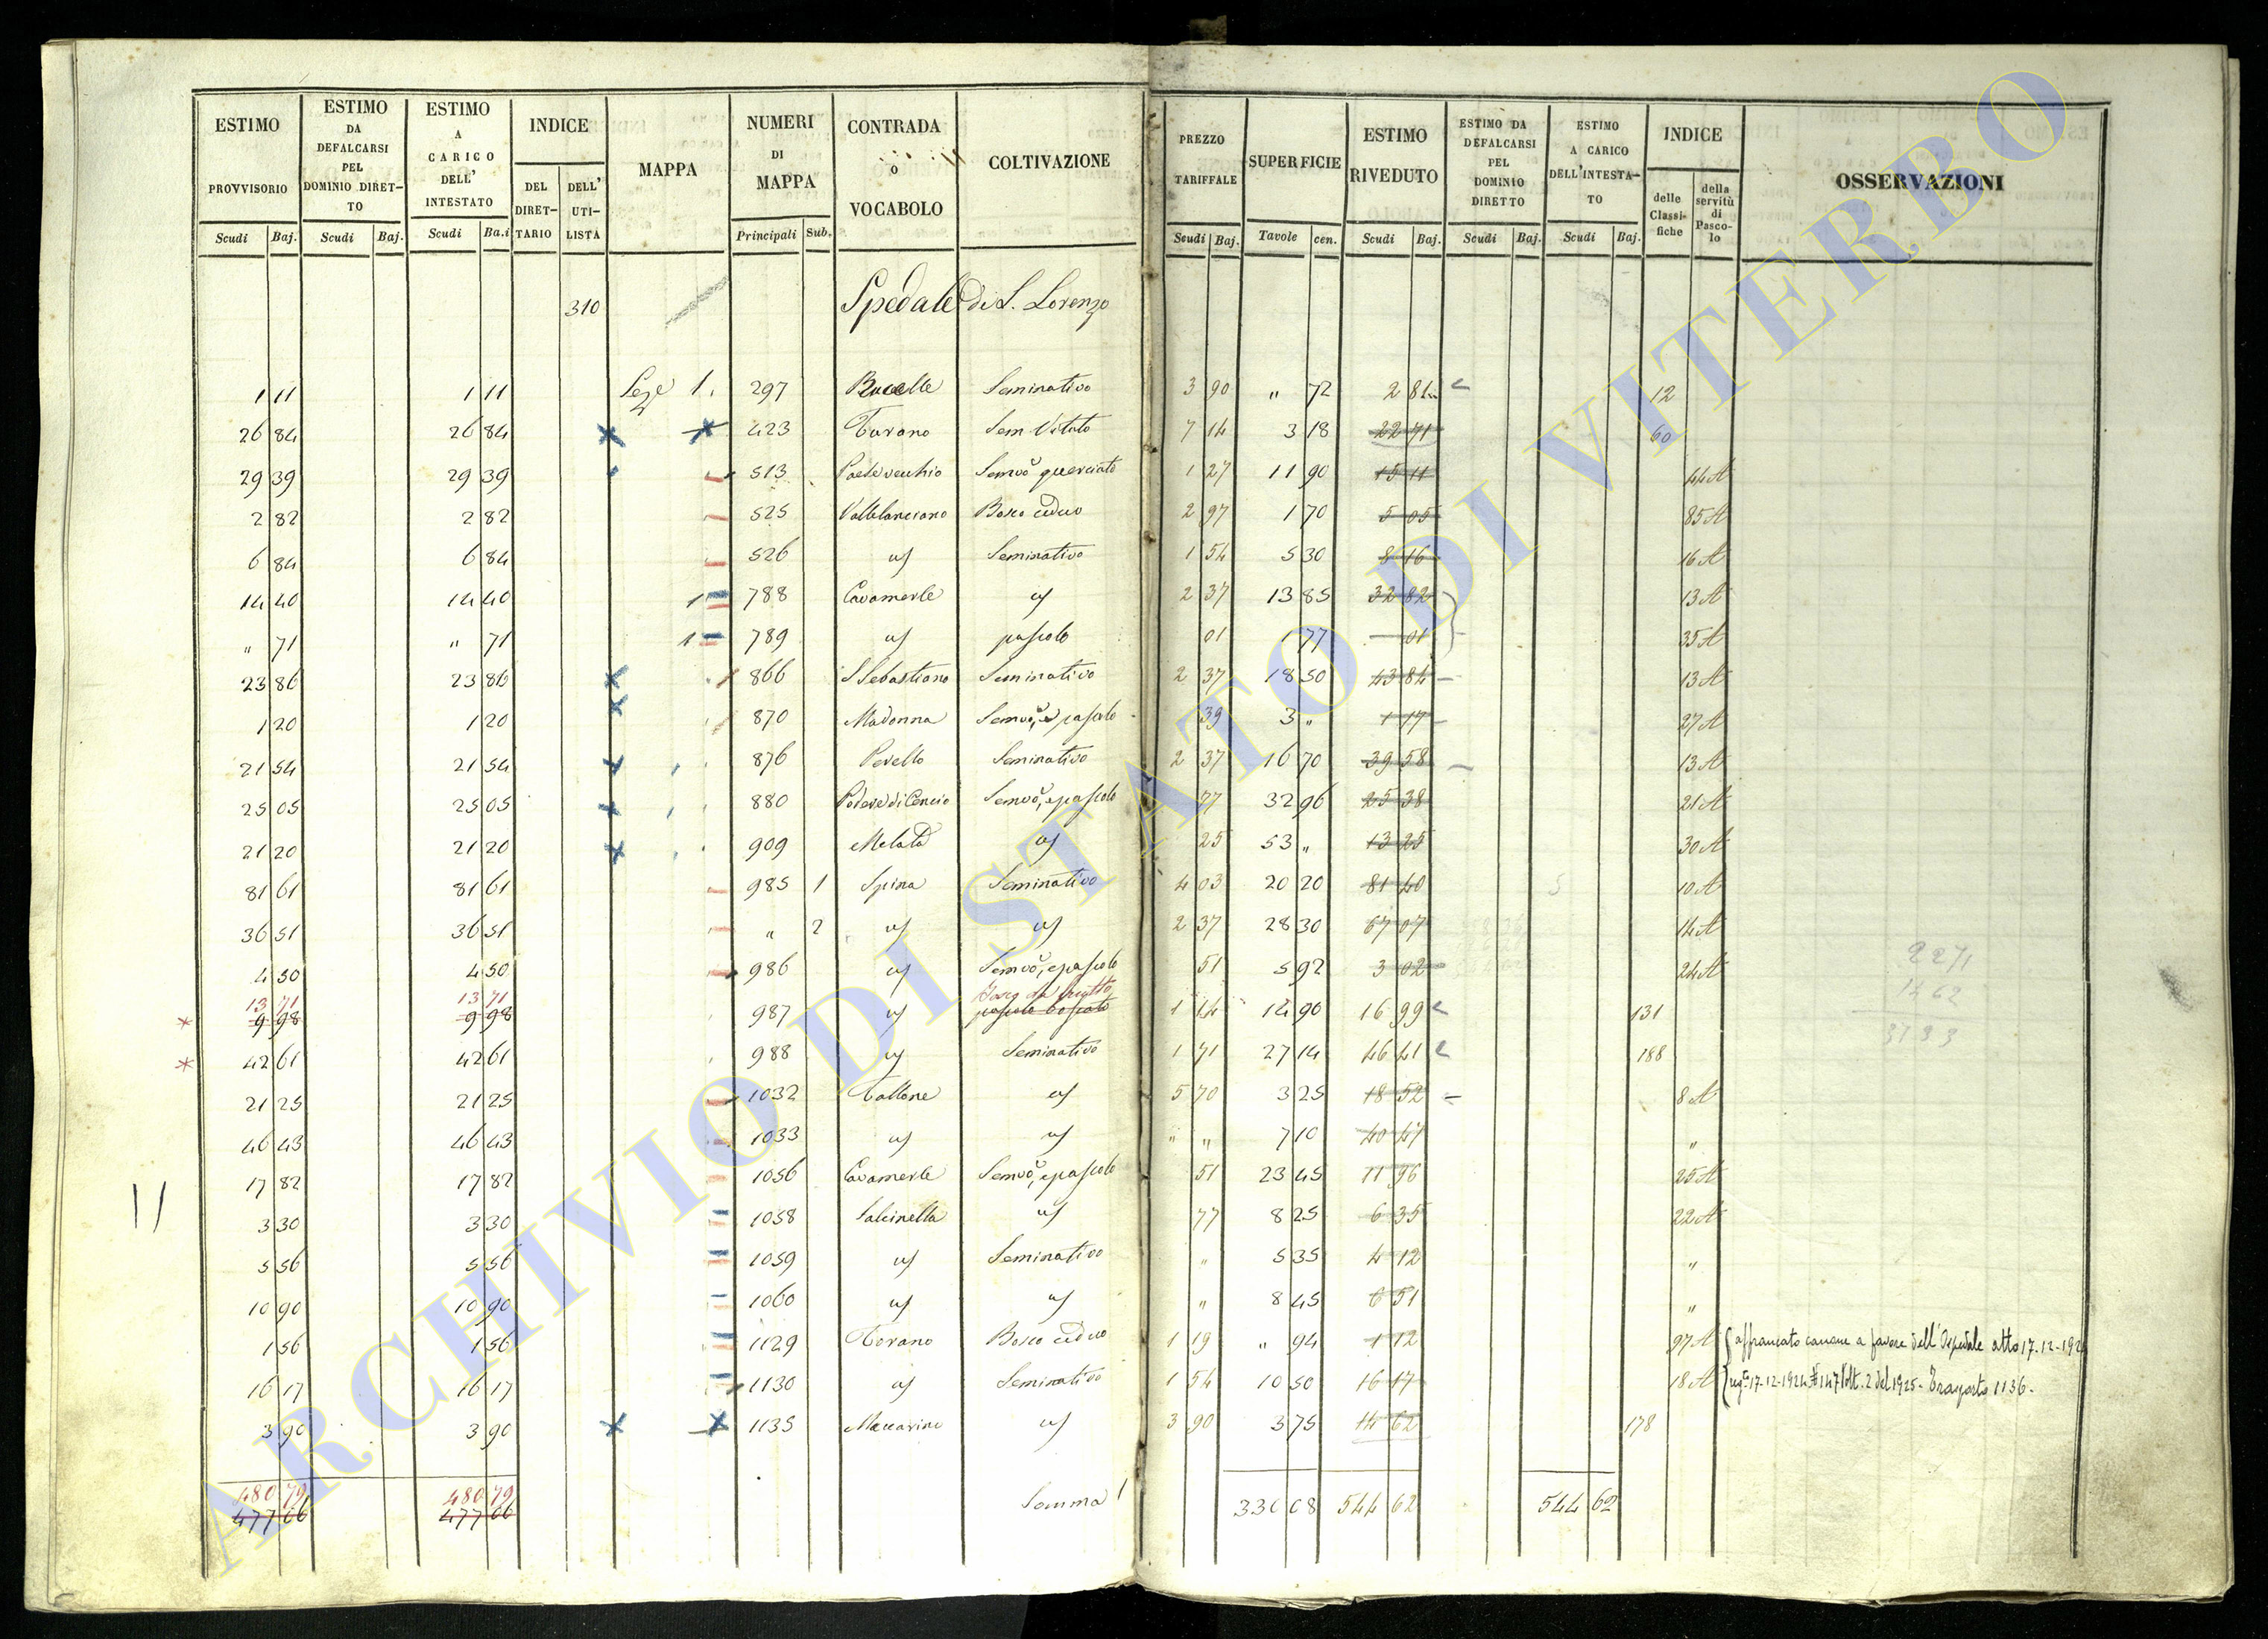 ESTIMO PROVVISORIO Scudi Baj. | ESTIMO DA DEFALCARSI PEL DOMINIO DIRET-TO Scudi Baj. | ESTIMO A CARICO DELL' INTESTATO Scudi Ba.i | INDICE DEL DIRET-TARIO | DELL' UTI-LISTA | MAPPA | NUMERI DI MAPPA Principali Sub. | CONTRADA O VOCABOLO | COLTIVAZIONE | PREZZO TARIFFALE Scudi Baj. | SUPERFICIE Tavole cen. | ESTIMO RIVEDUTO Scudi Baj. | ESTIMO DA DEFALCARSI PEL DOMINIO DIRETTO Scudi Baj. | ESTIMO A CARICO DELL'INTESTA-TO Scudi Baj. | INDICE delle Classi-fiche | della servitù di Pasco-lo | OSSERVAZIONI
310 Spedale di S. Lorenzo
1 11 1 11 Sez.e 1. 297 Seminativo 3 90 " 72 2 81 12
26 84 26 84 423 Sem Vitato 7 14 3 18 22 71 60
29 39 29 39 513 Semvo querciato 1 27 11 90 15 11 44 A
2 82 2 82 525 Vallelanciano Bosco ceduo 2 97 1 70 5 05 85 A
6 84 6 84 526 Seminativo 1 54 5 30 8 16 16 A
14 40 14 40 788 Cavamerle 2 37 13 85 32 82 13 A
" 71 " 71 789 pascolo 01 1 77 01 35 A
23 86 23 86 866 S Sebastiano Seminativo 2 37 18 50 43 84 13 A
1 20 1 20 870 Madonna Semvo, e pascolo 39 3 " 1 17 27 A
21 54 21 54 876 Seminativo 2 37 16 70 39 58 13 A
25 05 25 05 880 Podere di Cencio Semvo, e pascolo 77 32 96 25 38 21 A
21 20 21 20 909 Melata 25 53 " 13 25 30 A
81 61 81 61 985 1 Spina Seminativo 4 03 20 20 81 40 10 A
36 51 36 51 " 2 2 37 28 30 67 07 14 A
4 50 4 50 986 Semvo, e pascolo 51 5 92 3 02 24 A
13 71 13 71 Bosco da frutto
9 98 9 98 987 pascolo boscato 1 14 14 90 16 99 131
42 61 42 61 988 Seminativo 1 71 27 14 46 41 188
21 25 21 25 1032 5 70 3 25 18 52 8 A
46 43 46 43 1033 " " 7 10 40 47 "
17 82 17 82 1056 Cavamerle Semvo, e pascolo 51 23 45 11 96 25 A
11
3 30 3 30 1058 Salcinella 77 8 25 6 35 22 A
5 56 5 56 1059 Seminativo " 5 35 4 12 "
10 90 10 90 1060 " 8 45 6 51 "
1 56 1 56 1129 Torano Bosco ceduo 1 19 " 94 1 12 97 A affrancato canone a favore dell'Ospedale atto 17-12-192
16 17 16 17 1130 Seminativo 1 54 10 50 16 17 18 A 17-12-1924 147 Volt. 2 del 1925 - Trasporto 1136 -
3 90 3 90 1135 Maccarino 3 90 3 75 14 62 178
480 79 480 79
477 06 477 06 Somma 08 544 62 544 62
22 71
14 62
ARCHIVIO DI STATO DI VITERBO